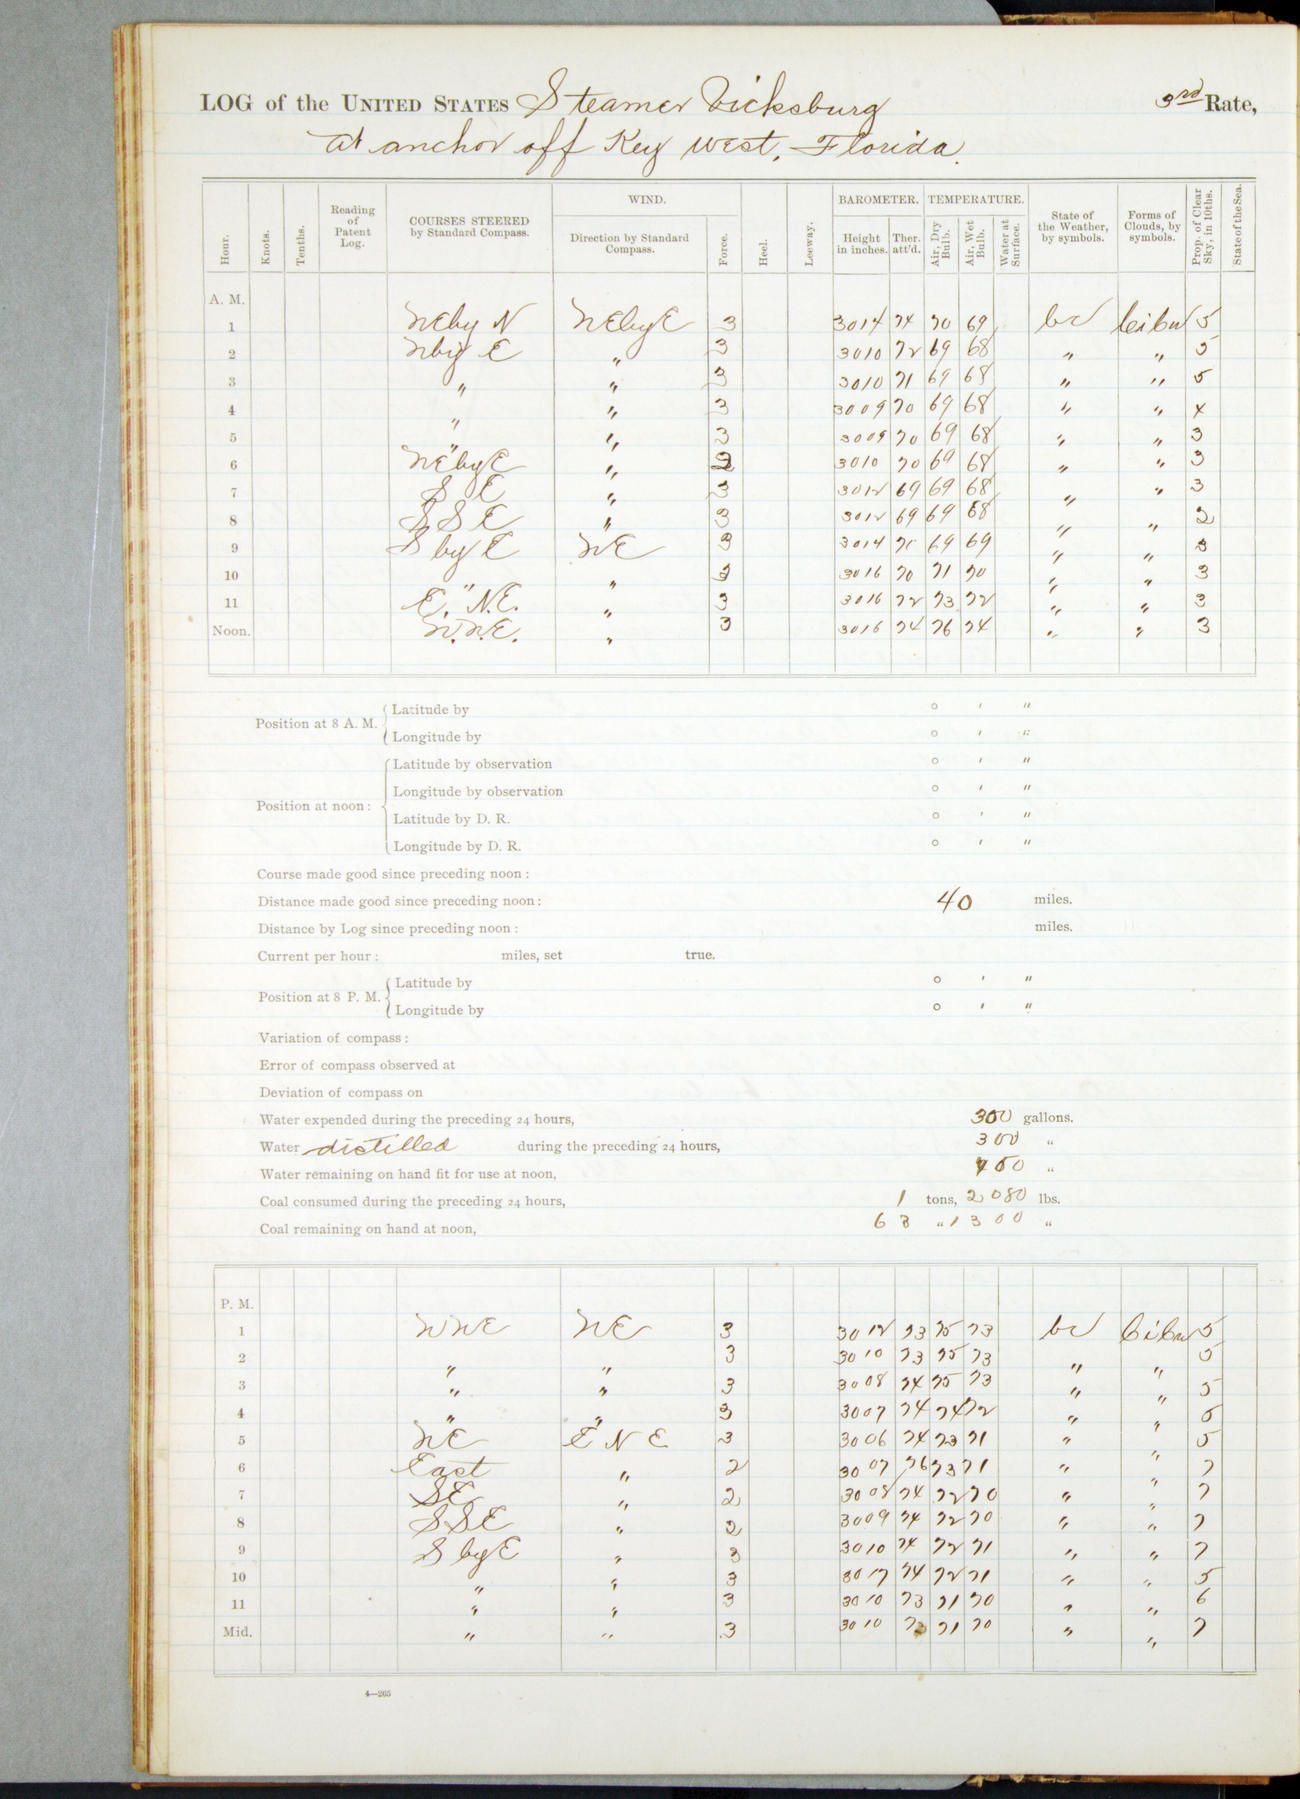 LOG of the UNITED STATES Steamer Vicksburg 3rd Rate,
at anchor off Key West, Florida.
Hour. Knots. Tenths. Reading of Patent Log. COURSES STEERED by Standard Compass. WIND. Direction by Standard Compass. Force. Heel. Leeway. BAROMETER. Height in inches. Ther. att'd. TEMPERATURE. Air, Dry Bulb. Air, Wet Bulb. Water at Surface. State of the Weather, by symbols. Forms of Clouds, by symbols. Prop. of Clear Sky, in 10ths. State of the Sea.
A. M.
1 NEby N NEbyE 3 3014 74 70 69 bc CiCu 5
2 Nby E " 3 3010 72 69 68 " " 5
3 " " 3 3010 71 69 68 " " 5
4 " " 3 3009 70 69 68 " " 4
5 " " 3 3009 70 69 68 " " 3
6 NEbyE " 3010 70 69 68 " " 3
7 S E " 3 3012 69 69 68 " " 3
8 S S E " 3 3012 69 69 68 " " 2
9 S by E NE 3 3014 71 69 69 " " 3
10 " " 3 3016 70 71 70 " " 3
11 E. N.E. " 3 3016 72 73 72 " " 3
Noon. N.N.E. " 3 3016 74 76 74 " " 3
Position at 8 A. M. Latitude by ° ' "
Longitude by ° ' "
Position at noon: Latitude by observation ° ' "
Longitude by observation ° ' "
Latitude by D. R. ° ' "
Longitude by D. R. ° ' "
Course made good since preceding noon:
Distance made good since preceding noon: 40 miles.
Distance by Log since preceding noon: miles.
Current per hour: miles, set true.
Position at 8 P. M. Latitude by ° ' "
Longitude by ° ' "
Variation of compass:
Error of compass observed at
Deviation of compass on
Water expended during the preceding 24 hours, 300 gallons.
Water distilled during the preceding 24 hours, 300 "
Water remaining on hand fit for use at noon, "
Coal consumed during the preceding 24 hours, 1 tons, 2080 lbs.
Coal remaining on hand at noon, 63 " 1300 "
P. M.
1 NNE NE 3 3012 73 75 73 bc CiCu 5
2 " " 3 3010 73 75 73 " " 5
3 " " 3 3008 74 75 73 " " 5
4 " " 3 3007 74 74 72 " " 5
5 NE E N E 3 3006 74 73 71 " " 5
6 East " 2 3007 76 73 71 " " 7
7 SE " 2 3008 74 72 70 " " 7
8 SSE " 2 3009 74 72 70 " " 7
9 S byE " 3 3010 74 72 71 " " 7
10 " " 3 74 72 71 " " 5
11 " " 3 3010 73 71 70 " " 6
Mid. " " 3 3010 73 71 70 " " 7
4—265